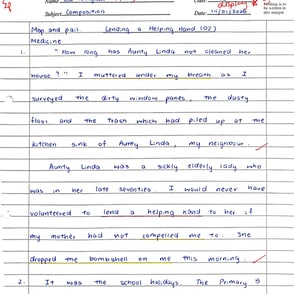 Subject: Composition
Date: 14/01/2026
writing is to
be written in
this margin
Mop and pail. Lending a Helping Hand (02)
Medicine
1. "How long has Aunty Linda not cleaned her
house?" I muttered under my breath as I
surveyed the dirty window panes, the dusty
floor and the trash which had piled up at the
kitchen sink of Aunty Linda, my neighbour.
Aunty Linda was a sickly elderly lady who
was in her late seventies. I would never have
volunteered to lend a helping hand to her if
my mother had not compelled me to. She
dropped the bombshell on me this morning.
2. It was the school holidays. The Primary 5